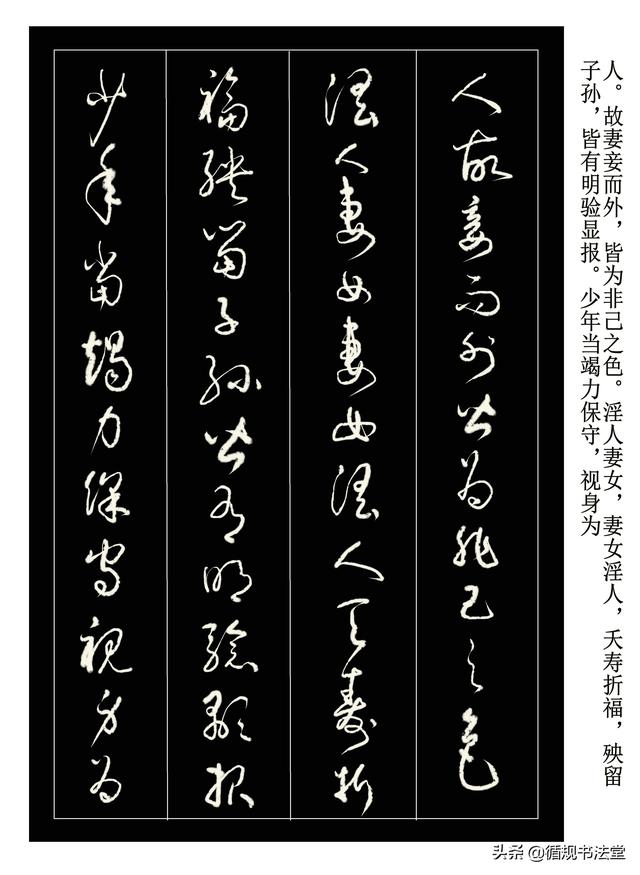 人故妻妾而外皆为非己之色
淫人妻女妻女淫人夭寿折
福殃留子孙皆有明验显报
少年当竭力保守视身为
人。故妻妾而外，皆为非己之色。淫人妻女，妻女淫人，夭寿折福，殃留
子孙，皆有明验显报。少年当竭力保守，视身为
头条 @循规书法堂